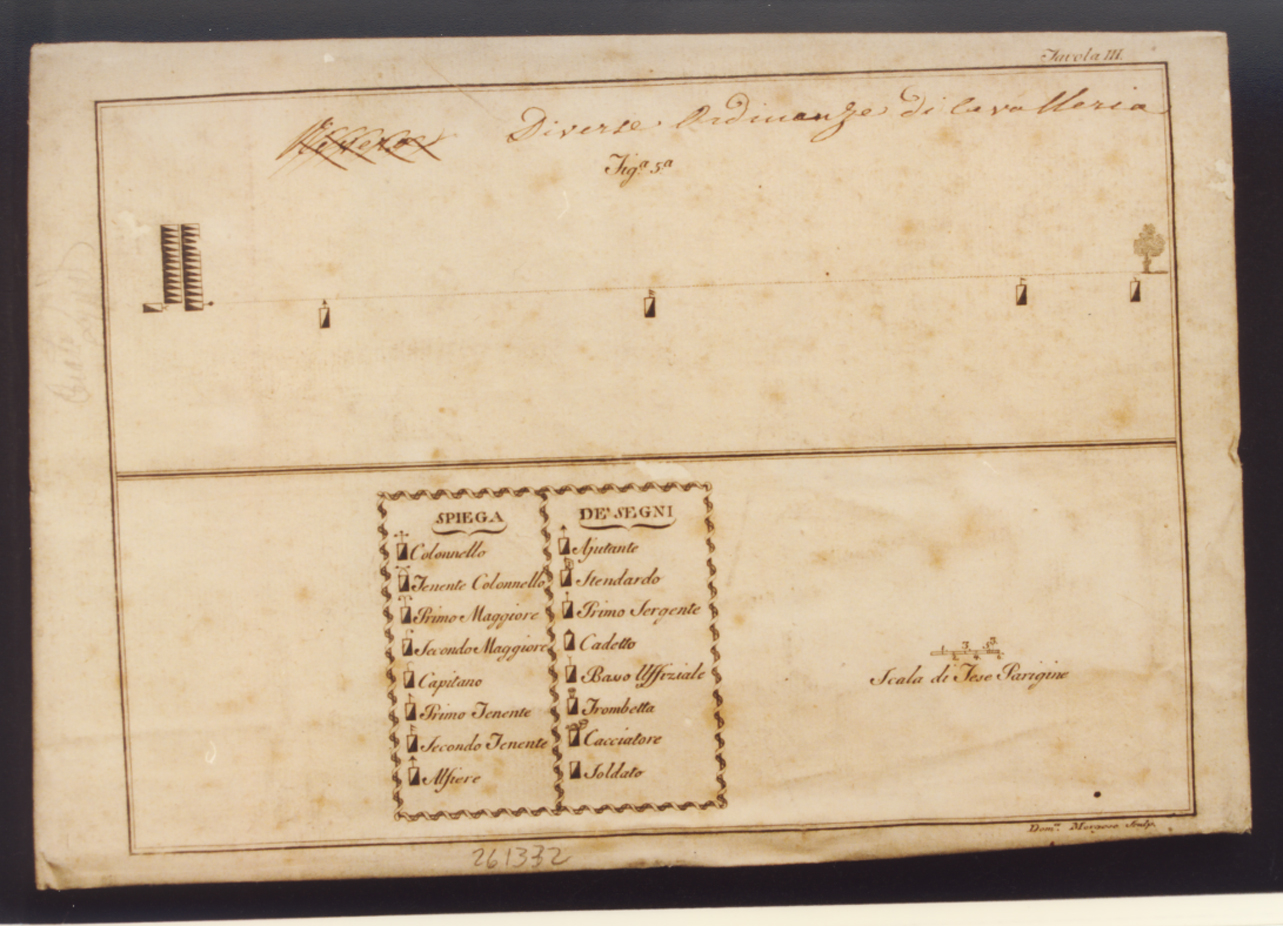 Tavola III.
Diverse Ordinanze di Cavalleria
Fig.ª 5ª
SPIEGA
Colonnello
Tenente Colonnello
Primo Maggiore
Secondo Maggiore
Capitano
Primo Tenente
Secondo Tenente
Alfiere
DE' SEGNI
Ajutante
Stendardo
Primo Sergente
Cadetto
Basso Uffiziale
Trombetta
Cacciatore
Soldato
Scala di Tese Parigine
Dom.co Morgese Sculp.
261332